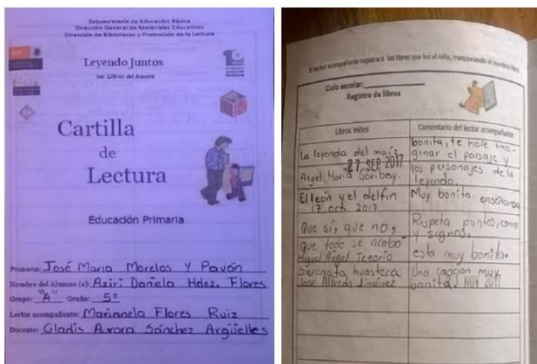 Subsecretaría de Educación Básica
Dirección General de Materiales Educativos
Dirección de Bibliotecas y Promoción de la Lectura
Leyendo Juntos
los Libros del Rincón
Cartilla
de
Lectura
Educación Primaria
Primaria: José María Morelos Y Pavón
Nombre del Alumno (a): Aziri Daniela Hdez. Flores
Grupo: "A" Grado: 5º
Lector acompañante: Marianela Flores Ruiz
Docente: Gladis Aurora Sánchez Argüelles
El lector acompañante registrará los libros que lea el niño, mencionando el nombre
Ciclo escolar:
Registro de libros
Libros leídos
Comentario del lector acompañante
La leyenda del maíz
27 SEP 2017
Angel María Garibay.
bonita, te hace ima-
ginar el paisaje y
los personajes de la
leyenda.
El león y el delfín
17 oct 2017
Muy bonita enseñanza
Que sí, que no,
que todo se acabo
Miguel Angel Tenorio
Respeta puntos, comas
y signos.
esta muy bonita.
Serenata huasteca
José Alfredo Jiménez
Una canción muy
bonita NOV 2017